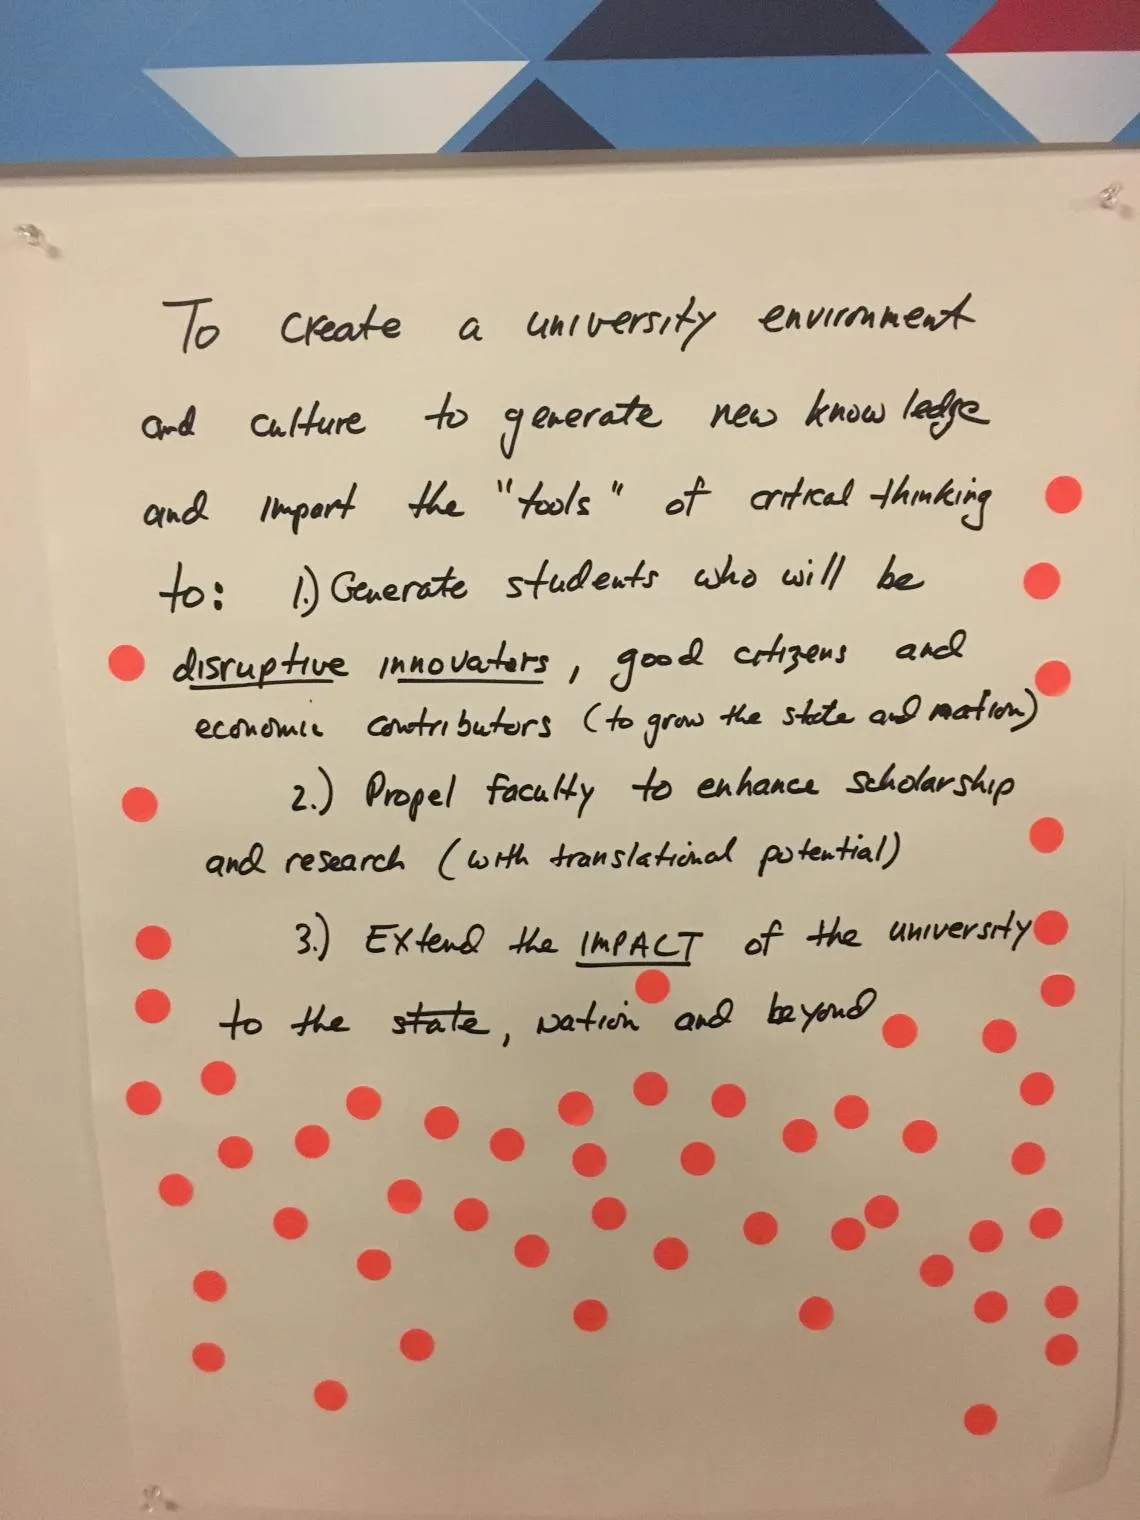 To create a university environment
and culture to generate new knowledge
and impart the "tools" of critical thinking
to: 1.) Generate students who will be
disruptive innovators, good citizens and
economic contributors (to grow the state and nation)
2.) Propel faculty to enhance scholarship
and research (with translational potential)
3.) Extend the IMPACT of the university
to the state, nation and beyond